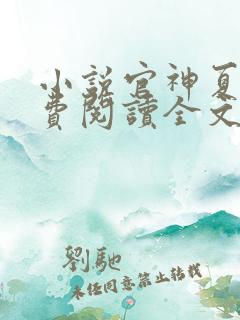 小說官神夏
費閱讀全文
劉馳
未經同意禁止轉載